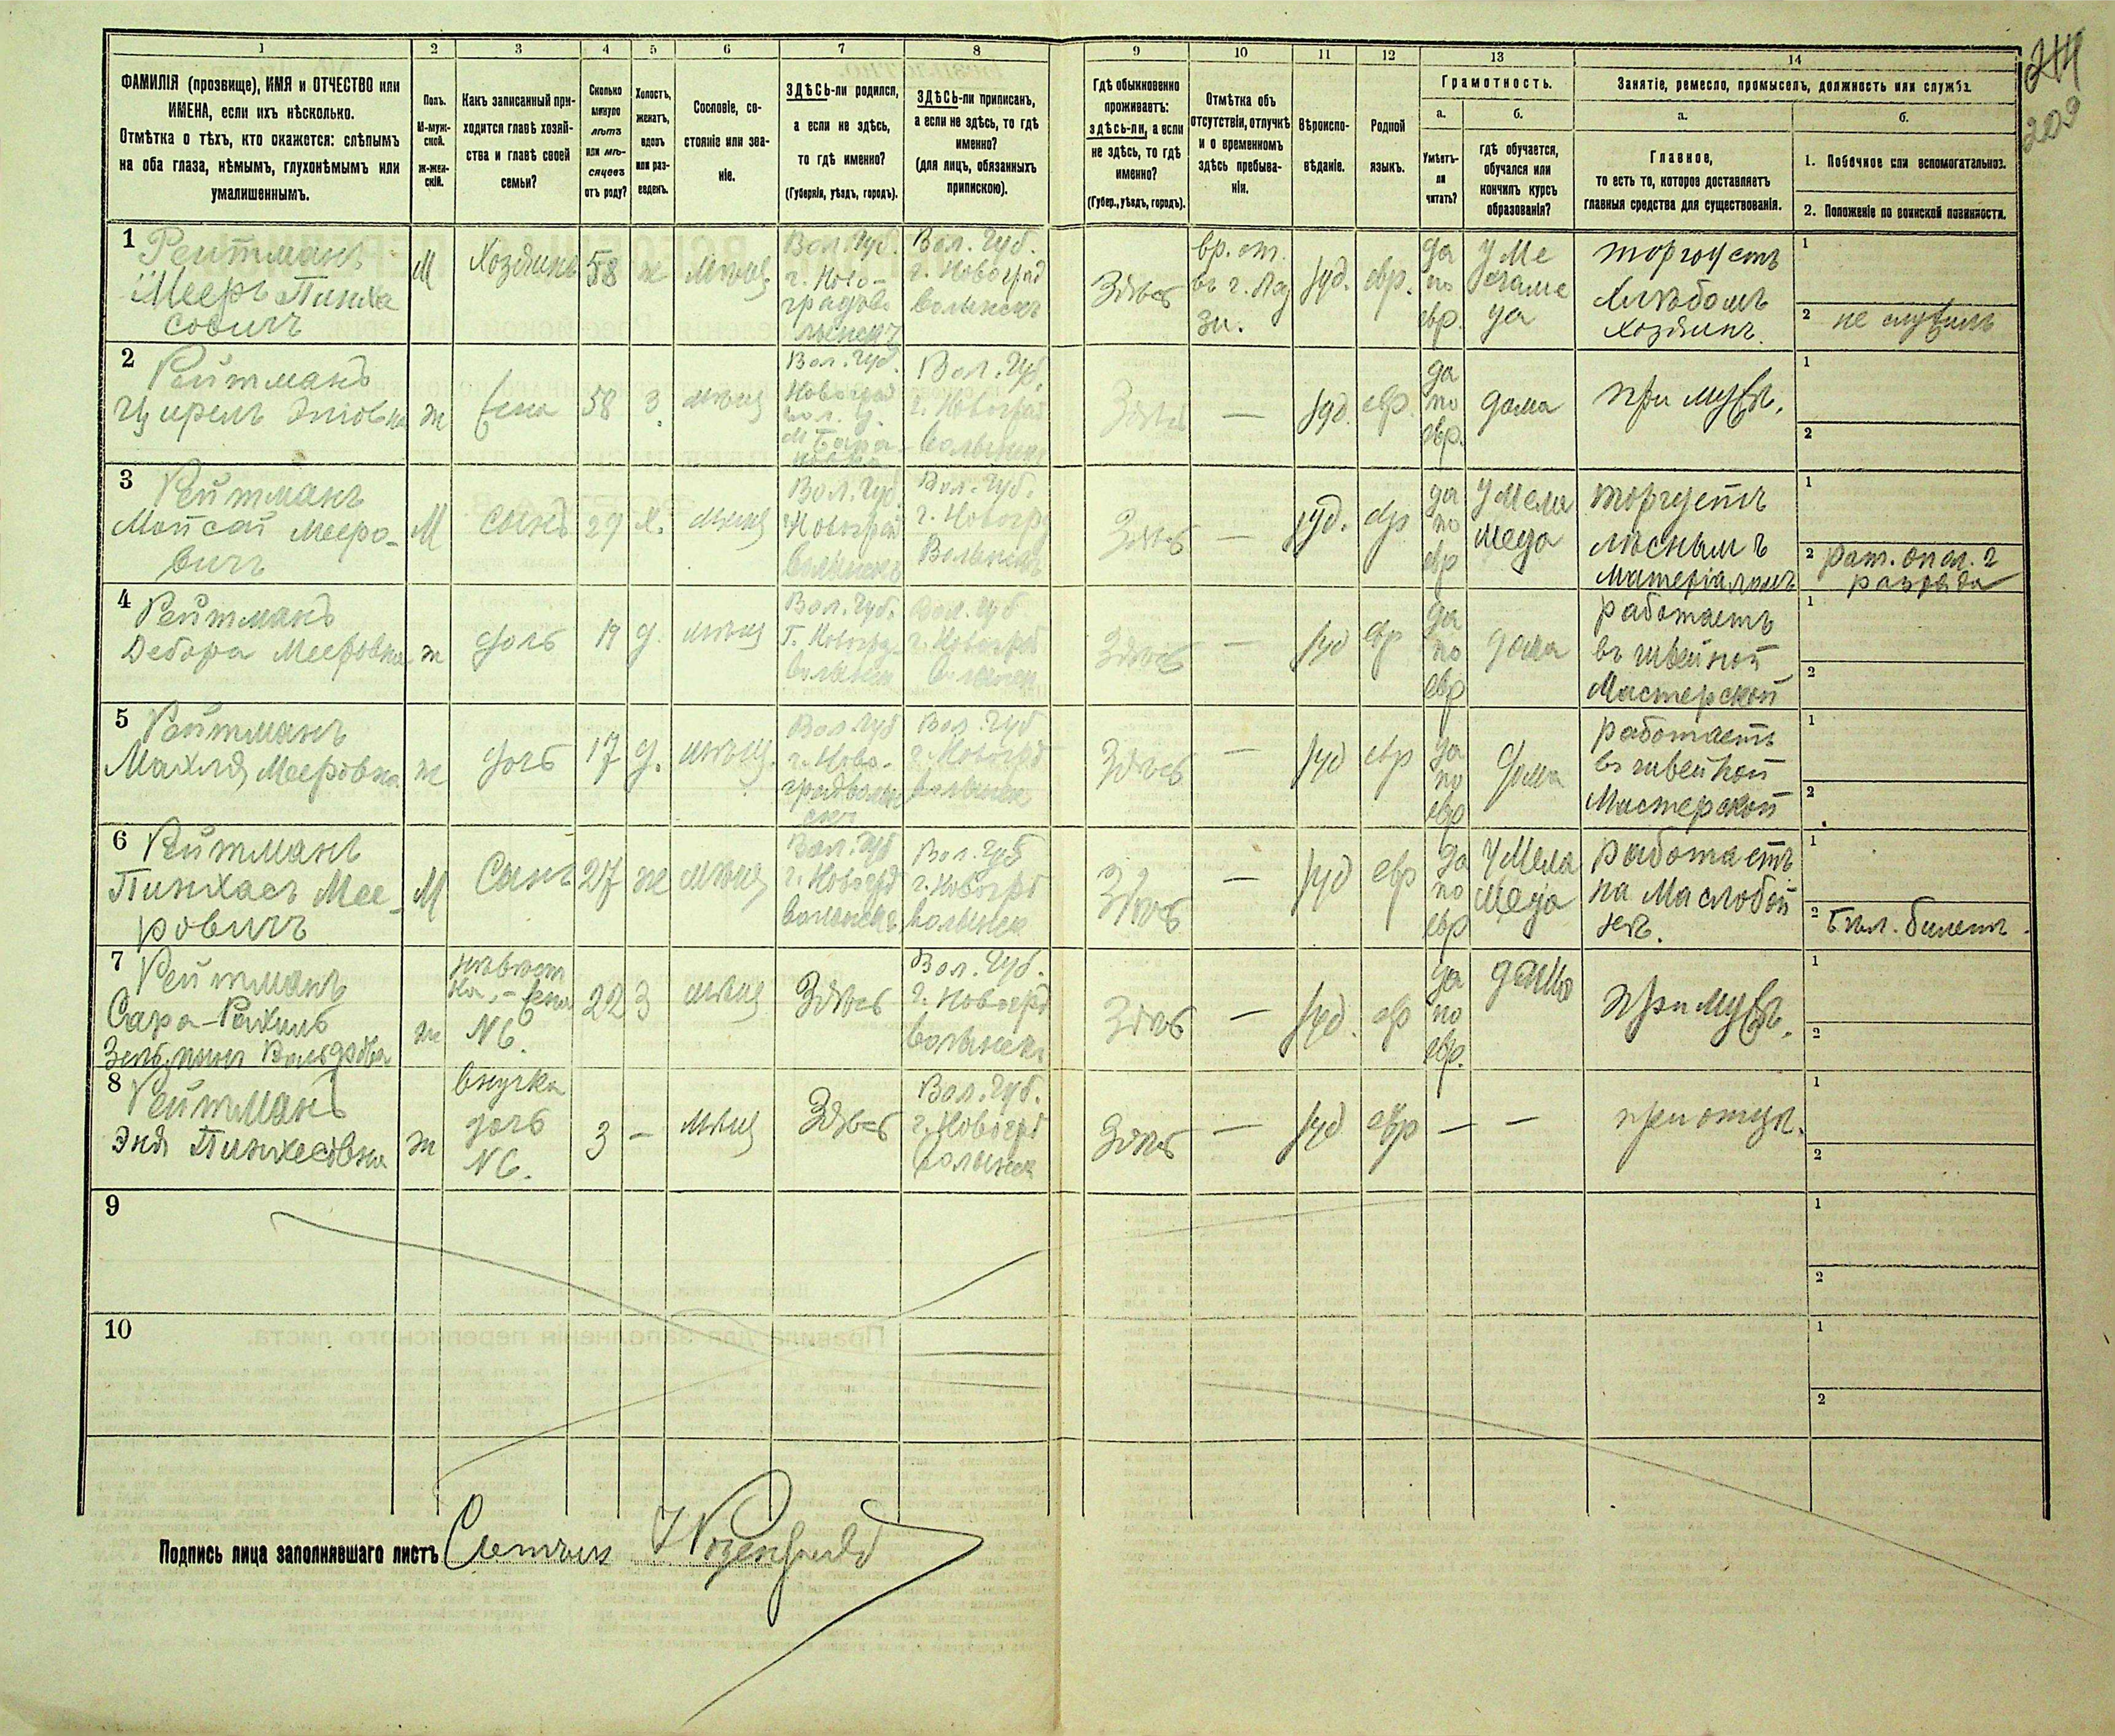 1
2
3
4
5
6
7
8
9
10
11
12
13
14
ФАМИЛІЯ (прозвище), ИМЯ и ОТЧЕСТВО или
ИМЕНА, если ихъ нѣсколько.
Отмѣтка о тѣхъ, кто окажется: слѣпымъ
на оба глаза, нѣмымъ, глухонѣмымъ или
умалишеннымъ.
Полъ.
М-муж-
ской.
Ж-жен-
скій.
Какъ записанный при-
ходится главѣ хозяй-
ства и главѣ своей
семьи?
Сколько
минуло
лѣтъ
или мѣ-
сяцевъ
отъ роду?
Холостъ,
женатъ,
вдовъ
или раз-
веденъ.
Сословіе, со-
стояніе или зва-
ніе.
ЗДѢСЬ-ли родился,
а если не здѣсь,
то гдѣ именно?
(Губернія, уѣздъ, городъ).
ЗДѢСЬ-ли приписанъ,
а если не здѣсь, то гдѣ
именно?
(для лицъ, обязанныхъ
припискою).
Гдѣ обыкновенно
проживаетъ:
здѣсь-ли, а если
не здѣсь, то гдѣ
именно?
(Губер., уѣздъ, городъ).
Отмѣтка объ
отсутствіи, отлучкѣ
и о временномъ
здѣсь пребыва-
ніи.
Вѣроиспо-
вѣданіе.
Родной
языкъ.
Грамотность.
а.
Умѣетъ-
ли
читать?
б.
гдѣ обучается,
обучался или
кончилъ курсъ
образованія?
Занятіе, ремесло, промыселъ, должность или служба.
а.
Главное,
то есть то, которое доставляетъ
главныя средства для существованія.
б.
1. Побочное или вспомогательное.
2. Положеніе по воинской повинности.
209
1
Рейтманъ
Мееръ Пинха
совичъ
М
Хозяинъ
58
ж
мѣщ
Вол. Губ.
Вол. Губ.
г. Новоград
Волынскъ
Здѣсь
іуд.
евр.
да
по
евр.
торгуетъ
хлѣбомъ
хозяинъ.
1
2 не служилъ
2
Рейтманъ
ж
жена
58
з.
мѣщ
Вол. Губ.
Вол. Губ.
г. Новоград
Волынск
Здѣсь
—
іуд.
евр.
да
по
евр.
дома
при мужѣ.
1
2
3
Рейтманъ
Мееро-
вичъ
М
сынъ
х.
мѣщ
Вол. Губ.
Новоград
Волынскъ
Вол. Губ.
Волынскъ
Здѣсь
—
іуд.
евр
да
по
евр
у мела
меда
торгуетъ
лѣснымъ
матеріаломъ
1
2 рат. опол. 2
разряда
4
Рейтманъ
Дебора Мееровна
ж
дочь
19
д.
мѣщ
Вол. Губ.
Вол. Губ
Здѣсь
—
іуд
евр
да
по
евр
дома
работаетъ
въ швейной
мастерской
1
2
5
Рейтманъ
Махля Мееровна
ж
дочь
17
д.
мѣщ.
Вол. Губ
г. Ново-
градволын
скъ
Вол. Губ
Волынск
Здѣсь
—
іуд
евр
да
по
евр
дома
работаетъ
въ швейной
мастерской
1
2
6
Рейтманъ
Пинхасъ Мее-
ровичъ
М
Сынъ
27
ж
мѣщ
Вол. Губ
г. Новогрд
Волынскъ
Вол. Губ
г. Новогрд
Волынск
Здѣсь
—
іуд
евр
да
по
евр
у мела
меда
работаетъ
на маслобой
нѣ.
1
2 бѣл. билетъ
7
Рейтманъ
Сара-Рахиль
ж
невѣст
ка, - жена
№6.
22
з
мѣщ
Здѣсь
Вол. Губ.
г. Новогрд
Волынск
Здѣсь
—
іуд.
евр
да
по
евр.
дома
при мужѣ.
1
2
8
Рейтманъ
Эня Пинхесовна
ж
внучка
дочь
№6.
3
—
мѣщ
Здѣсь
Вол. Губ.
г. Новогрд
Волынск
Здѣсь
—
іуд
евр
—
—
при отцѣ.
1
2
9
1
2
10
1
2
Подпись лица заполнявшаго листъ Счетчик